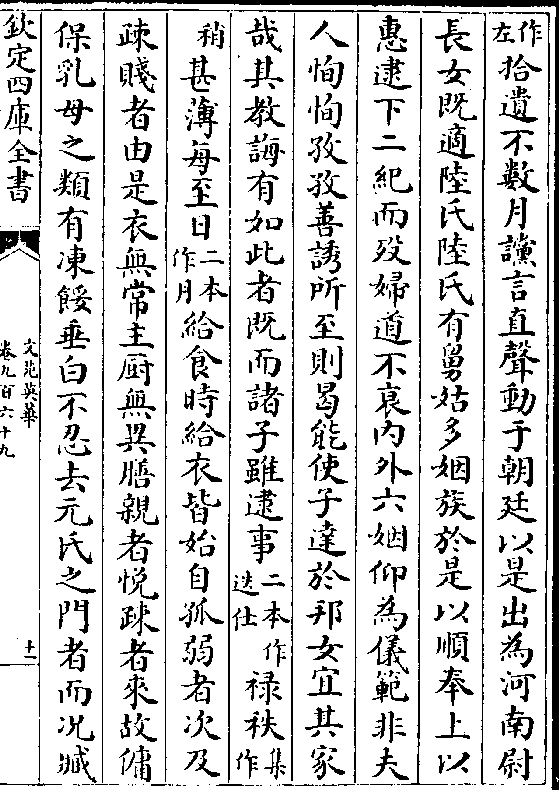 作左拾遺不數月讜言直聲動于朝廷以是出為河南尉
長女既適陸氏陸氏有舅姑多姻族於是以順奉上以
惠逮下二紀而歿婦道不衰内外六姻仰為儀範非夫
人恂恂孜孜善誘所至則曷能使子達於邦女宜其家
哉其教誨有如此者既而諸子雖逮事二本作迭仕禄秩集作
稍甚薄每至日二本作月給食時給衣皆始自孤弱者次及
疎賤者由是衣無常主厨無異膳親者悦疎者來故傭
保乳母之類有凍餒垂白不忍去元氏之門者而况臧
欽定四庫全書
文苑英華
卷九百六十九
十一